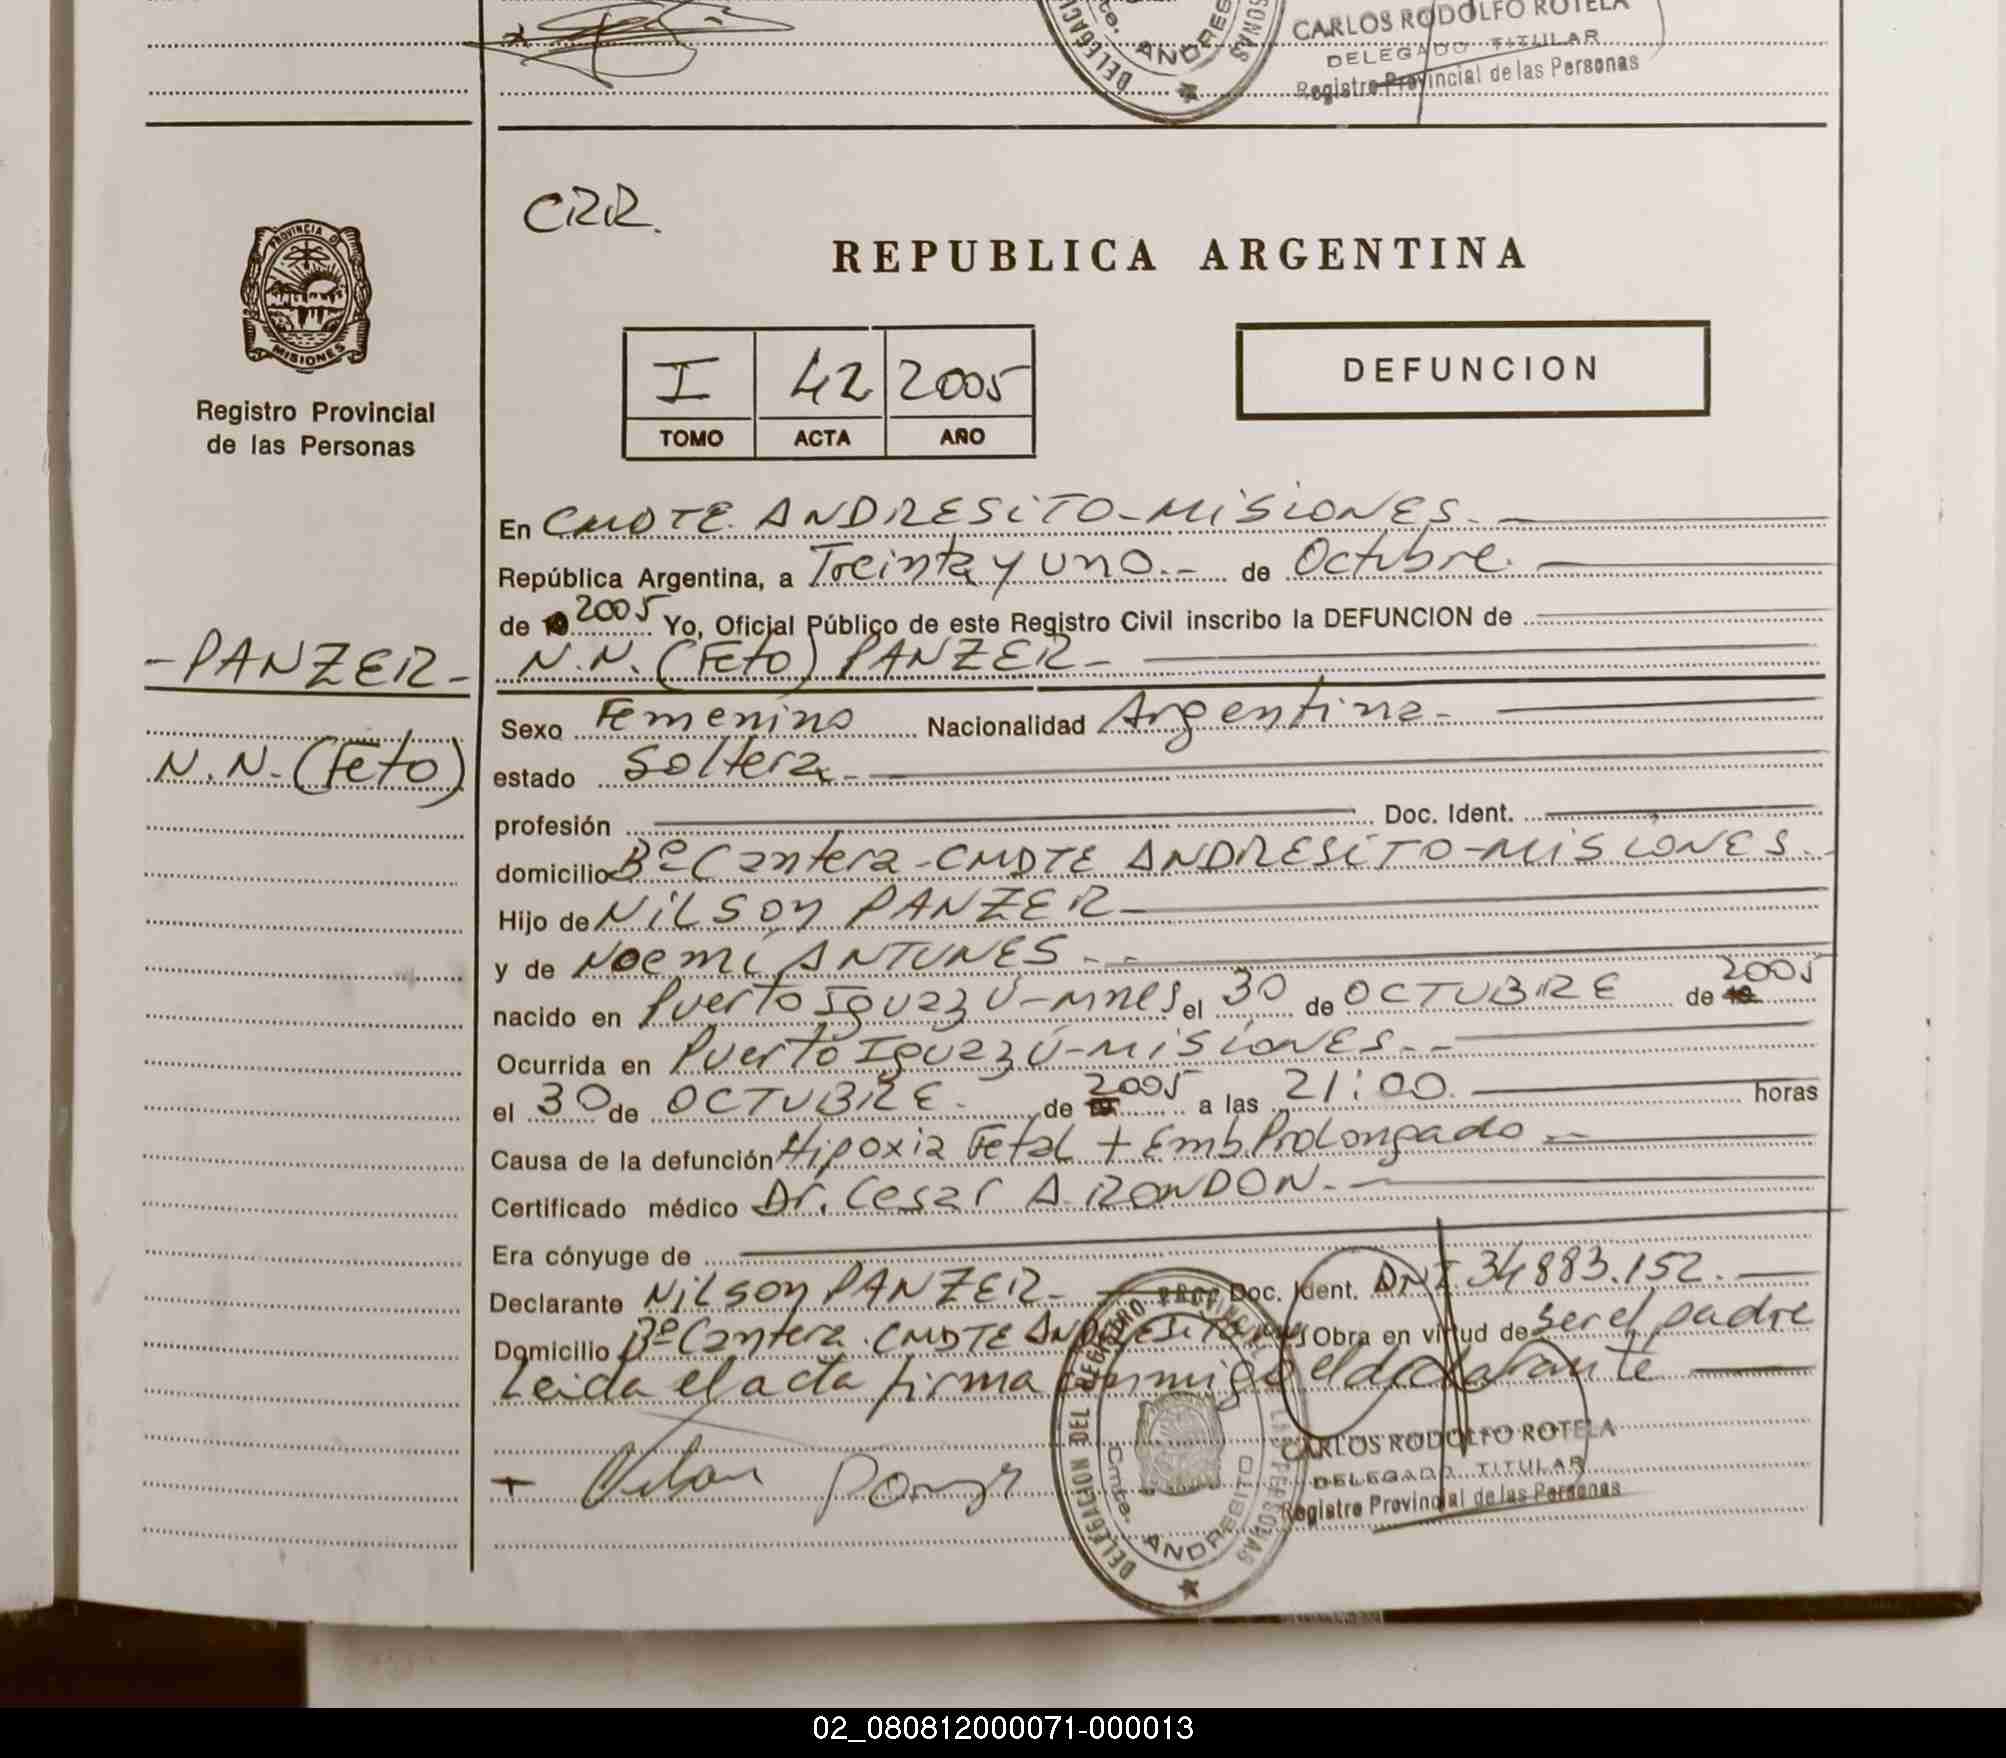 CARLOS RODOLFO ROTELA
DELEGADO TITULAR
Registro Provincial de las Personas
DELEGACI
Cte. ANDRES
SONAS
CRR.
PROVINCIA D
MISIONES
Registro Provincial
de las Personas
REPUBLICA ARGENTINA
I 42 2005
TOMO ACTA AÑO
DEFUNCION
En CMDTE. ANDRESITO-MISIONES.-
República Argentina, a Treinta y uno.- de Octubre.
de 19 2005 Yo, Oficial Público de este Registro Civil inscribo la DEFUNCION de
-PANZER-
N.N. (Feto) PANZER-
N.N. (Feto)
Sexo Femenino Nacionalidad Argentina-
estado Soltera-
profesión Doc. Ident.
domicilio Bº Cantera-CMDTE ANDRESITO-MISIONES.
Hijo de NILSON PANZER
y de NOEMI ANTUNES.-
nacido en Puerto Iguazú-Mnes el 30 de OCTUBRE de 19 2005
Ocurrida en Puerto Iguazú-MISIONES.-
el 30 de OCTUBRE. de 19 2005 a las 21:00 horas
Causa de la defunción Hipoxia Fetal + Emb. Prolongado
Certificado médico Dr. Cesar A. RONDON.-
Era cónyuge de
Declarante NILSON PANZER- Doc. Ident. DNI 34883.152.
Domicilio Bº Cantera. CMDTE ANDRESITO Obra en virtud de ser el padre
Leida el acta firma conmigo el declarante
Nilson Panzer
DELEGACION DEL REGISTRO PROVINCIAL LAS PERSONAS
Cmte. ANDRESITO
CARLOS RODOLFO ROTELA
DELEGADO TITULAR
Registro Provincial de las Personas
02_080812000071-000013